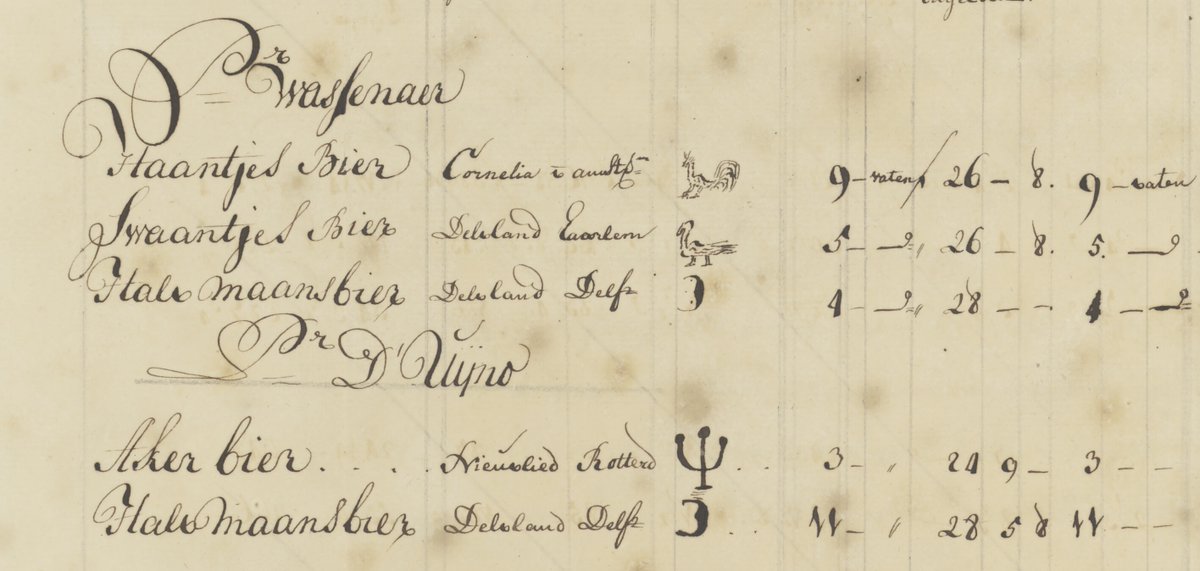 Pr Wassenaer
Haantjes Bier Cornelia 9 - vaten 26 - 8. 9 - vaten
Swaantjes Bier Delvland Haarlem 5 - 26 - 8. 5. -
Halv maansbier Delvland Delft 4 - 28 - - 4 -
Pr D'Uijno
Aker bier . . . . Nieuvlied Rotterd . . 3 - " 24 9 - 3 - -
Halv maansbier Delvland Delft . . 11 - " 28 5 8 11 - -